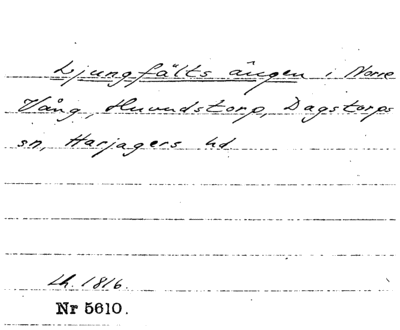 Ljungfälts ängen i Norre
Vång, Huvudstorp, Dagstorps
sn, Harjagers hd
Lh. 1816.
Nr 5610.